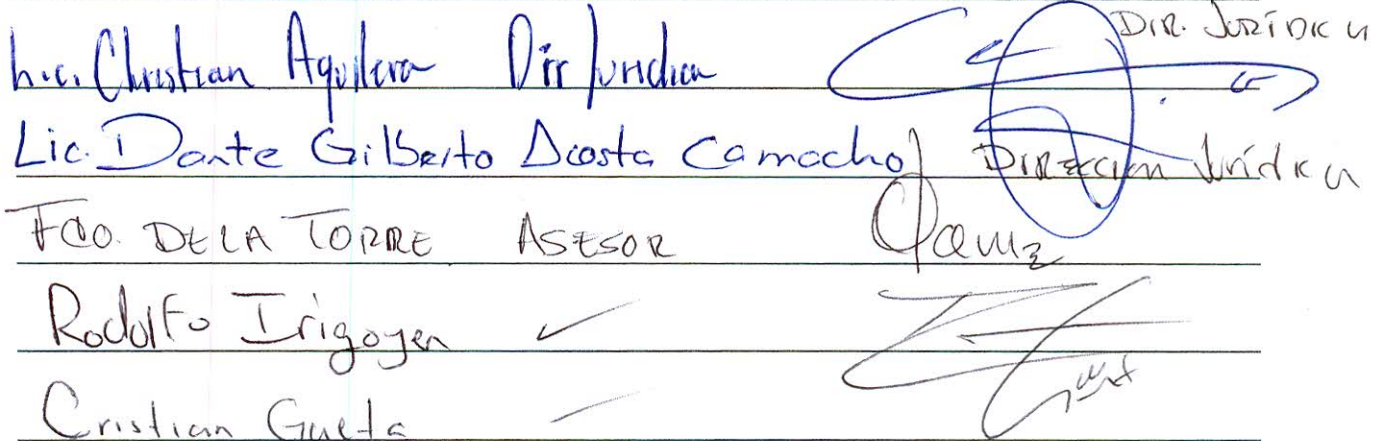 Lic. Christian Aguilera Dir Juridica DIR. JURÍDICA
Lic. Dante Gilberto Acosta Camacho DIRECCION Jurídica
FCO. DE LA TORRE ASESOR
Rodolfo Irigoyen
Cristian